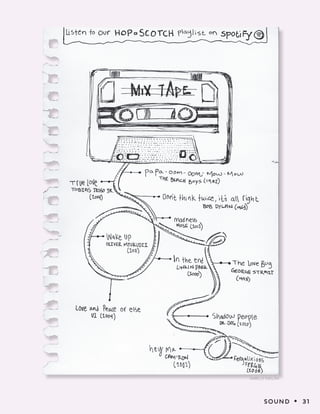 Listen to our HOP•SCOTCH playlist on spotify
MIX TAPE
pa pa-oom-oom, Mow-Mow
THE BEACH BOYS
True Love
TOBIAS JESSO JR.
Don't think twice, it's all right
BOB DYLAN (1963)
madness
MUSE
Wake Up
In the end
LINKIN PARK
(2000)
The Love Bug
GEORGE STRAIT
Love and Peace or else
U2 (2004)
Shadow people
DR. DOG (2010)
hey Ma
CAM'RON
(2002)
Fergalicious
FERGIE
(2006)
SOUND • 31